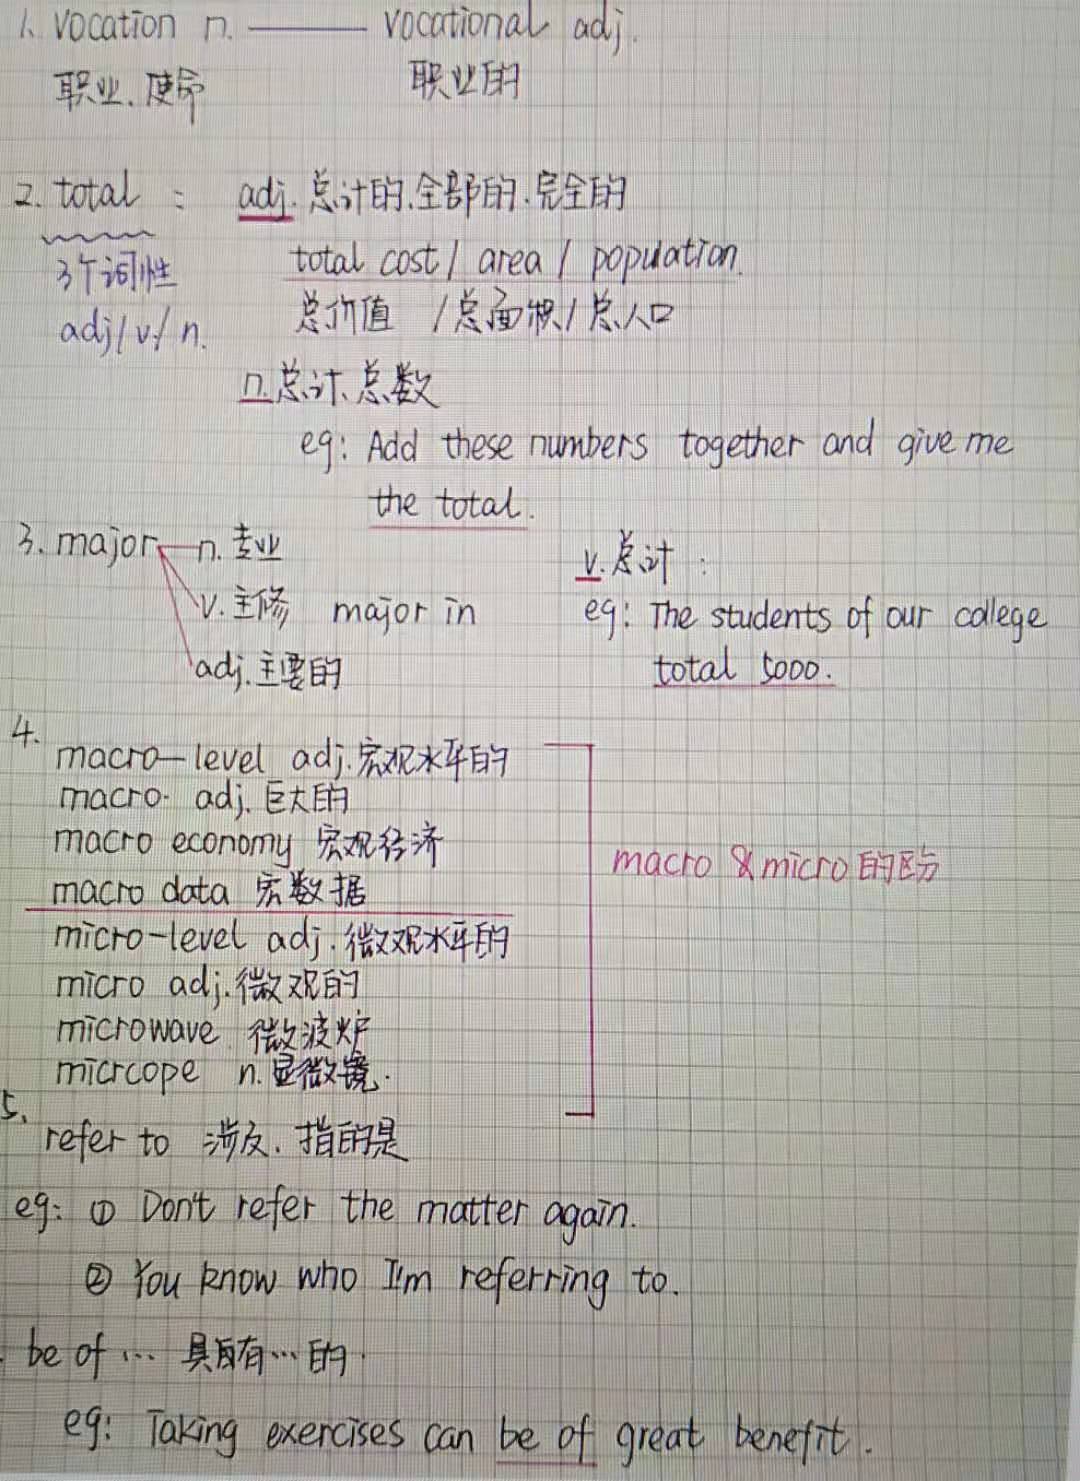 1. vocation n. —— vocational adj.
职业、使命 职业的
2. total : adj. 总计的.全部的.完全的
3个词性 total cost / area / population.
adj/v/n. 总价值 /总面积/总人口
n.总计、总数
eg: Add these numbers together and give me
the total.
3. major n. 专业
v. 主修 major in
adj.主要的
v.总计:
eg: The students of our college
total 5000.
4.
macro-level adj.宏观水平的
macro· adj. 巨大的
macro economy 宏观经济
macro data 宏数据
micro-level adj.微观水平的
micro adj.微观的
microwave 微波炉
micrcope n.显微镜.
macro & micro 的区分
5.
refer to 涉及.指的是
eg: ① Don't refer the matter again.
② You know who I'm referring to.
be of … 具有…的.
eg: Taking exercises can be of great benefit.